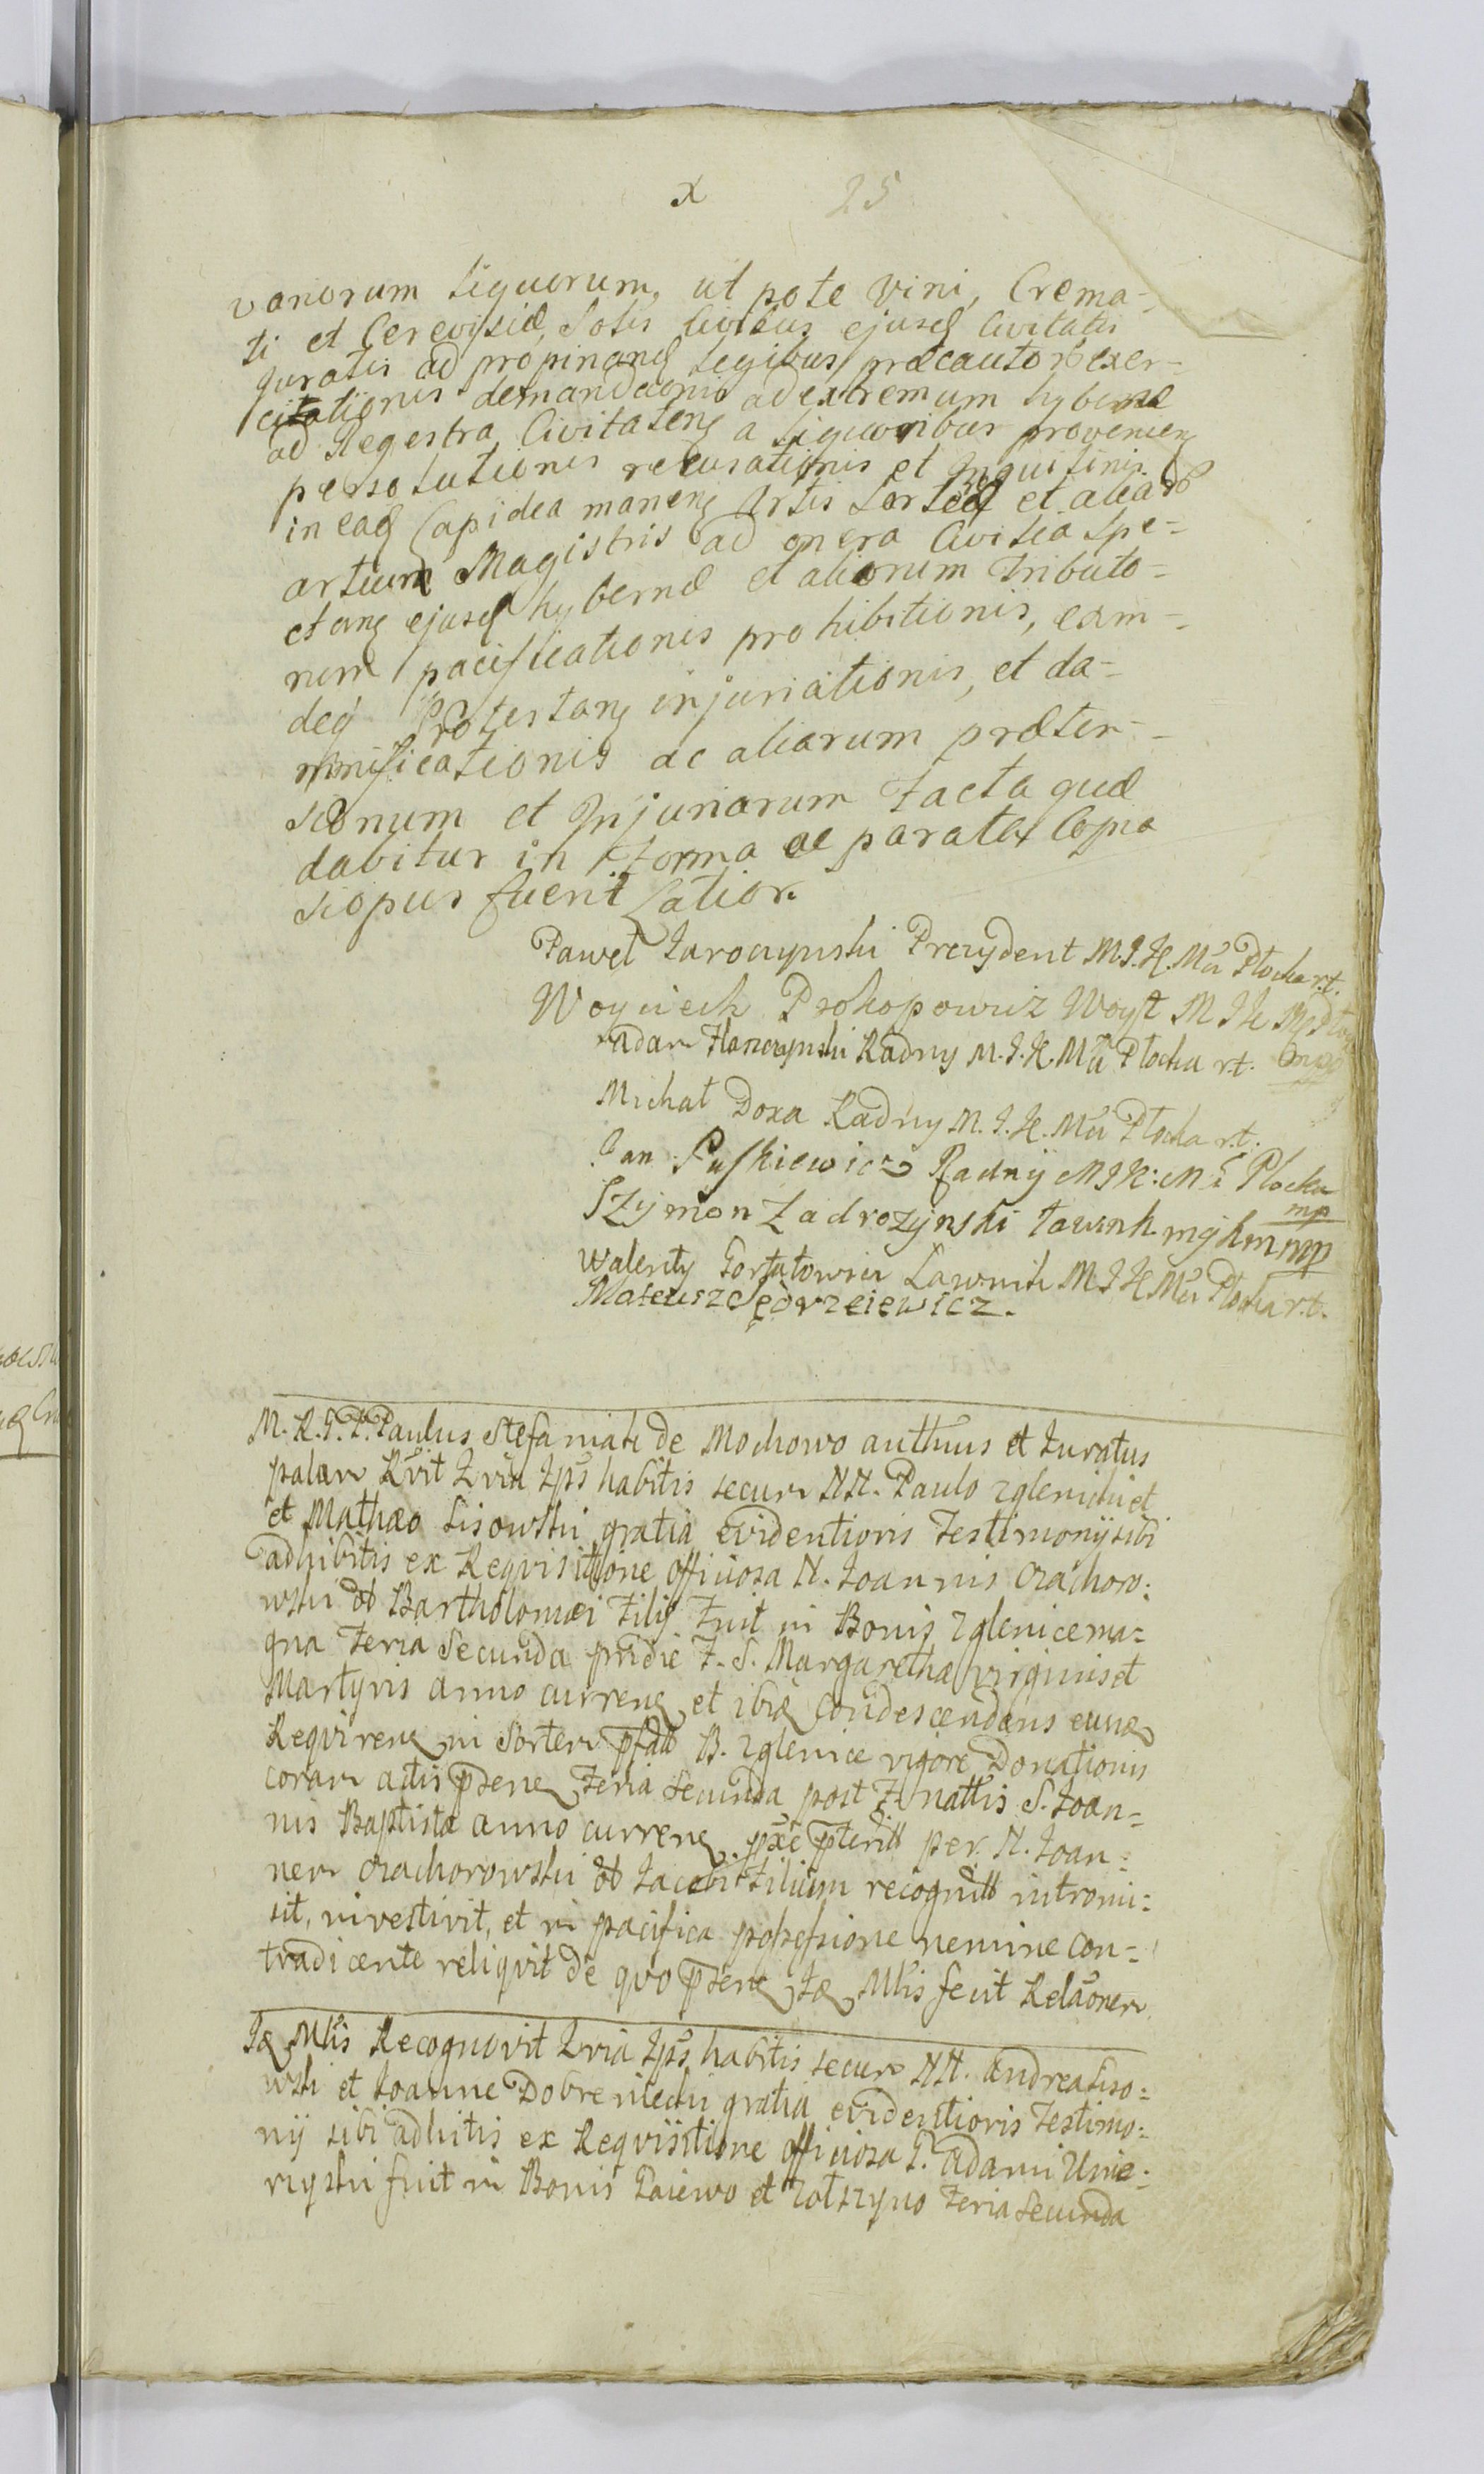 x 25
variorum Liquorum, ut pote Vini, Crema-
ti et Cerevisiæ, Solis Civibus ejusd Civitatis
Juratis ad propinand legibus præcautor exer-
citationis demandaonis ad extremum hybernæ
ad Regestra Civitaten a Liquoribus provenien
persolutionis recusationis et Inquilinis
in ead Lapidea manen Artis et aliar
artium Magistris ad onera Civilia Spe-
ctan ejusd hybernæ et aliorum Tributo-
rum pacificationis prohibitionis, eam-
deq Protestan injuriationis, et da-
mnificationis ac aliarum præten-
sionum et Injuriarum facta quæ
dabitur in forma ac parata Copia
si opus fuerit Latior.
Paweł Jaroczynski Prezydent M.J.K. Mci Płocka r.t.
Woyciech Prokopowicz Woyt M J K Mci
Adam Radny M.J.K. Mci Płocka r.t.
Michał Doxa Radny M.J.K. Mci Płocka r.t.
Jan Radny MJK: Mci Płocka
mp
Szymon Zadrozynski Ławnk mjkm mp
Walenty Ławnik M J K Mci Płocka r.t.
Mateusz Jędrzeiewicz.
M. R. J. P. Paulus Stefaniak de Mochowo authus et Juratus
palam Rvit habitis secum NN. Paulo Zglenicki et
et Mathæo Lisowski gratia evidentioris Testimonij sibi
adhibitis ex Reqvisitione officiosa N. Joannis Czachoro:
wski Bartholomæi Filij fuit in Bonis Zglenice ma=
gna Feria Secunda pridie F. S. Margarethæ Virginis et
Martyris anno curren et ibiq Condescendens eundem
Reqviren in Sortem B. Zglenice vigore Donationis
coram actis psten Feria Secunda post F. nattis S. Joan=
nis Baptistæ anno curren per N. Joan=
nem Czachorowski Jacobi Filium recognitt intromi=
sit, investivit, et in pacifica possessione nemine con=
tradicente reliqvit de qvo psten Id Mlis fecit Relaonem
Id Mlis Recognovit habitis secum NN. Andrea Liso=
wski et Joanne Dobreniecki gratia evidentioris Testimo=
nij sibi adhitis ex Reqvisitione officiosa G. Adami Unie=
rzyski fuit in Bonis et Feria Secunda